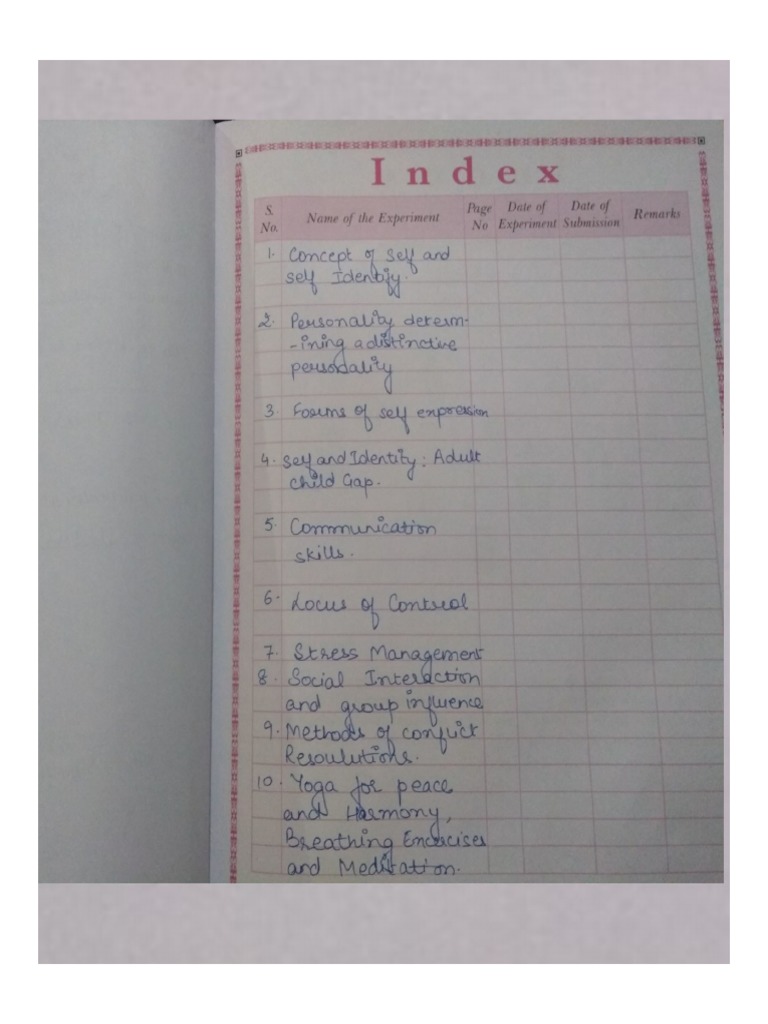 Index
S. No. Name of the Experiment Page No Date of Experiment Date of Submission Remarks
1. Concept of self and
self Identify.
2. Personality determ-
-ining a distinctive
personality
3. Forms of self expression
4. self and Identity : Adult
child Gap.
5. Communication
skills.
6. Locus of Control
7. Stress Management
8. Social Interaction
and group influence
9. Methods of conflict
Resoulutions.
10. Yoga for peace
and Harmony,
Breathing Excercises
and Meditation.